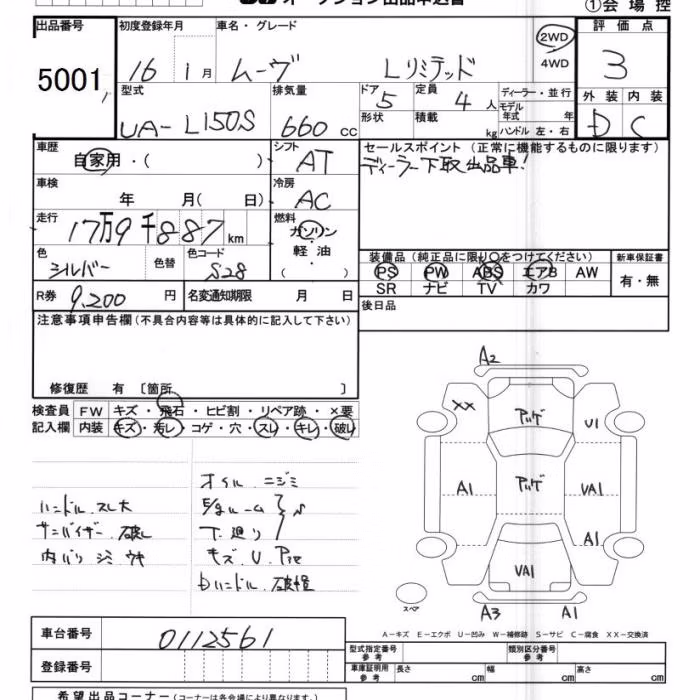 オークション出品申込書
①会場控
出品番号
5001
初度登録年月
16 1月
車名・グレード
ムーヴ Lリミテッド
2WD
4WD
評価点
3
型式
UA-L150S
排気量
660 cc
ドア
5
定員
4人
形状
積載
kg
ディーラー・並行
モデル年式 年
ハンドル 左・右
外装 内装
D C
車歴
自家用・( )
シフト
AT
セールスポイント(正常に機能するものに限ります)
ディーラー下取出品車!
車検
年 月( 日)
冷房
AC
走行
17万9千887km
燃料
ガソリン
・
軽油
( )
色
シルバー
色替
色コード
S28
装備品(純正品に限り○をつけてください)
PS PW ABS エアB AW
SR ナビ TV カワ
新車保証書
有・無
R券 9,200 円
名変通知期限 月 日
後日品
注意事項申告欄(不具合内容等は具体的に記入して下さい)
修復歴 有 〔箇所 〕
検査員 FW キズ・飛石・ヒビ割・リペア跡・×要
記入欄 内装 キズ・汚レ・コゲ・穴・スレ・キレ・破レ
オイル.ニジミ
ハンドル.スレ大
サンバイザー.破レ
下廻り
内バリ シミ ウキ
キズ.U.
A2
XX
U1
アリゲ
A1
アリゲ
UA1
A1
UA1
A3
A1
スペア
A-キズ E-エクボ U-凹み W-補修跡 S-サビ C-腐食 XX-交換済
車台番号 0112561
登録番号
型式指定番号 参考
類別区分番号 参考
車庫証明用 参考 長さ cm 幅 cm 高さ cm
希望出品コーナー(コーナーは各会場により異なります。)